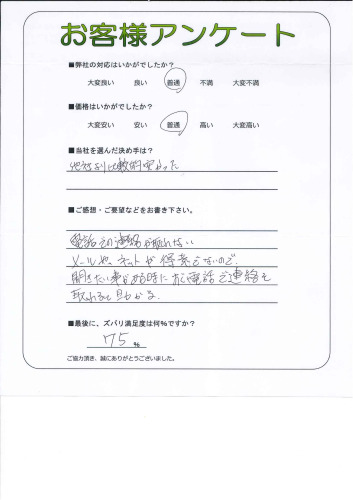 お客様アンケート
■弊社の対応はいかがでしたか?
大変良い 良い 普通 不満 大変不満
■価格はいかがでしたか?
大変安い 安い 普通 高い 大変高い
■当社を選んだ決め手は?
他社より比較的安かった
■ご感想・ご要望などをお書き下さい。
電話での連絡が取れない
メールや、ネットが得意でないので、
聞きたい事がある時に お電話で連絡を
取れると助かる
■最後に、ズバリ満足度は何%ですか?
75 %
ご協力頂き、誠にありがとうございました。